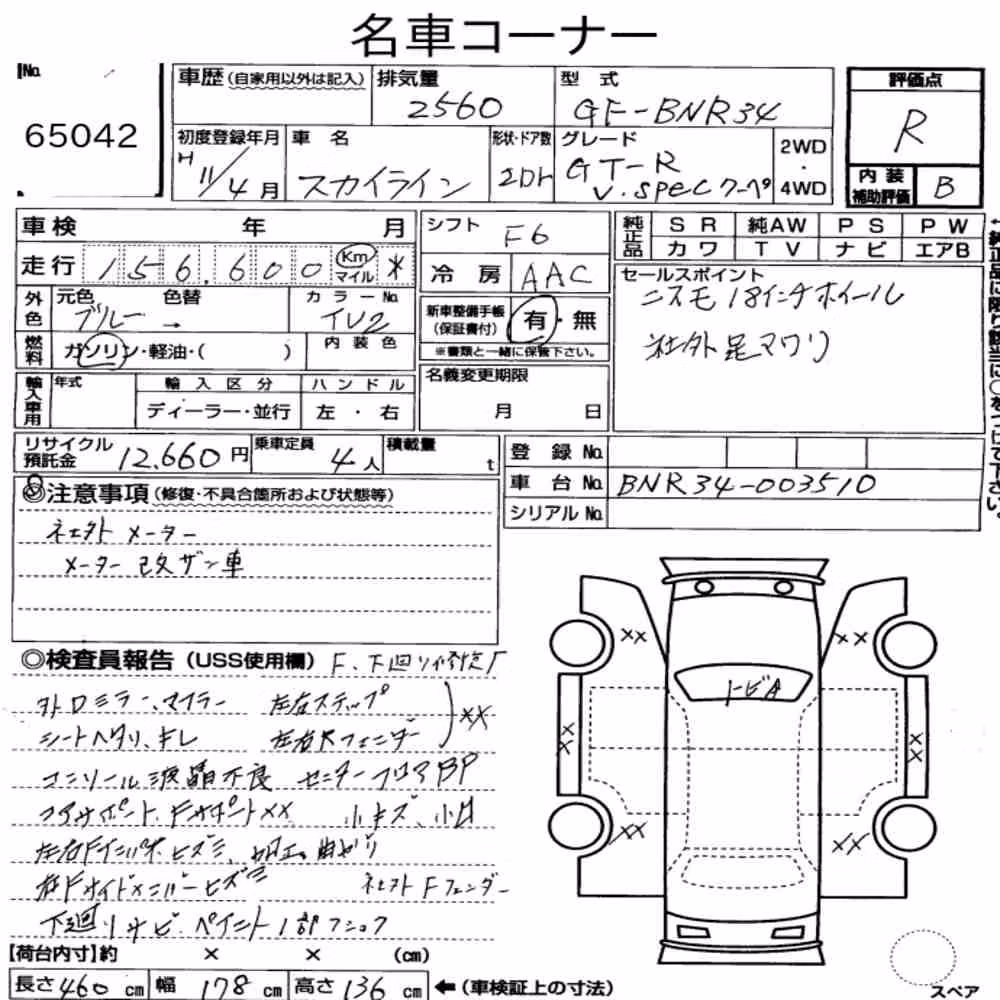 名車コーナー
No.
65042
車歴(自家用以外は記入)
排気量
2560
型 式
GF-BNR34
評価点
R
初度登録年月
H 11/4月
車 名
スカイライン
形状・ドア数
2Dr
グレード
GT-R
V.specクーペ
2WD
・
4WD
内 装
補助評価
B
車検 年 月
シフト
F6
純正品
SR 純AW PS PW
カワ TV ナビ エアB
走行 156,600 Km マイル *
冷 房
AAC
セールスポイント
ニスモ18インチホイール
社外足マワリ
外色
元色 色替
ブルー →
カラーNo.
TV2
新車整備手帳
(保証書付)
有・無
※書類と一緒に保管下さい。
燃料
ガソリン・軽油・( )
内 装 色
輸入車用
年式
輸 入 区 分
ディーラー・並行
ハ ン ド ル
左 ・ 右
名義変更期限
月 日
リサイクル
預託金
12,660円
乗車定員
4人
積載量
t
登 録 No.
車 台 No.
BNR34-003510
シリアル No.
◎注意事項(修復・不具合箇所および状態等)
社外メーター
メーター改ザン車
◎検査員報告(USS使用欄)
F、下廻り修
左右ステップ
シートヘタリ、キレ
左右Rフェンダー
XX
コンソール液晶不良
センターフロアBP
XX
小キズ、小凹
社外Fフェンダー
下廻りサビ・ペイント1部
トビA
XX
XX
XX
XX
XX
XX
【荷台内寸】約 × × (cm)
長さ460cm 幅178cm 高さ136cm ←(車検証上の寸法)
スペア
←純正品に限り該当に○をつけて下さい。